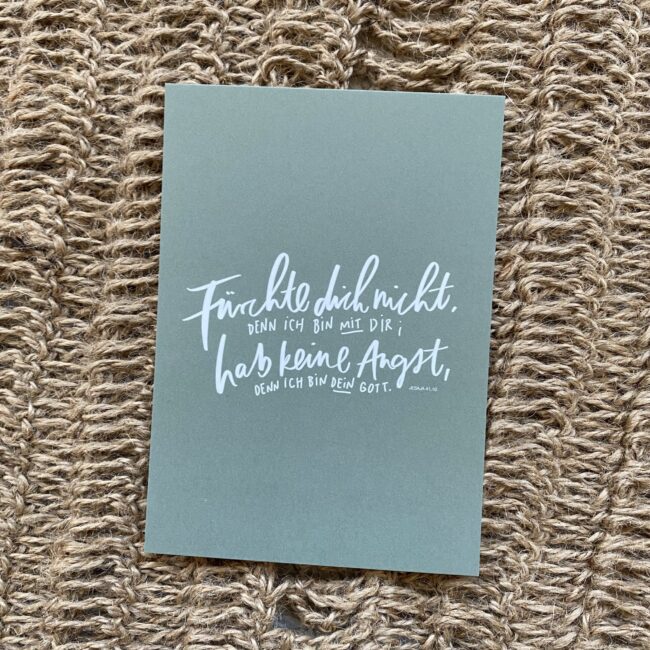 Fürchte dich nicht,
DENN ICH BIN MIT DIR;
hab keine Angst,
DENN ICH BIN DEIN GOTT.